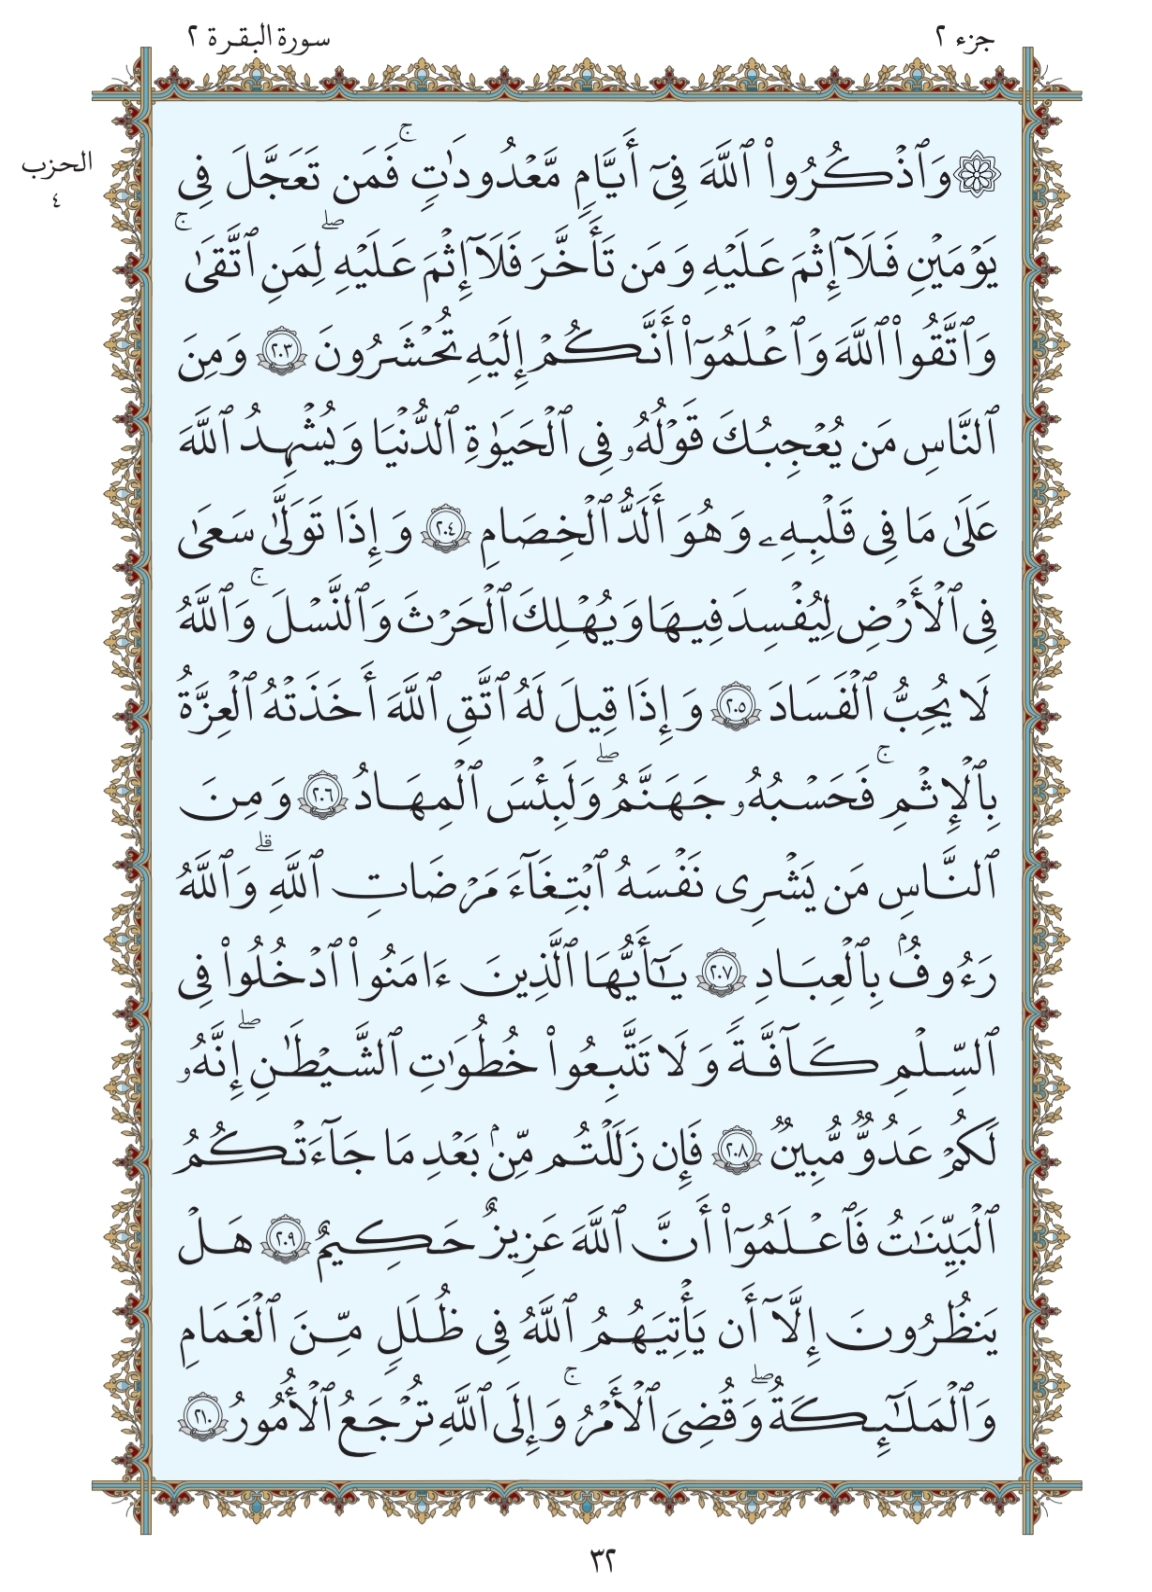 جزء ٢
سورة البقرة ٢
الحزب
٤
۞ وَٱذْكُرُوا۟ ٱللَّهَ فِىٓ أَيَّامٍ مَّعْدُودَٰتٍ ۚ فَمَن تَعَجَّلَ فِى
يَوْمَيْنِ فَلَآ إِثْمَ عَلَيْهِ وَمَن تَأَخَّرَ فَلَآ إِثْمَ عَلَيْهِ ۖ لِمَنِ ٱتَّقَىٰ ۚ
وَٱتَّقُوا۟ ٱللَّهَ وَٱعْلَمُوٓا۟ أَنَّكُمْ إِلَيْهِ تُحْشَرُونَ ٢٠٣ وَمِنَ
ٱلنَّاسِ مَن يُعْجِبُكَ قَوْلُهُۥ فِى ٱلْحَيَوٰةِ ٱلدُّنْيَا وَيُشْهِدُ ٱللَّهَ
عَلَىٰ مَا فِى قَلْبِهِۦ وَهُوَ أَلَدُّ ٱلْخِصَامِ ٢٠٤ وَإِذَا تَوَلَّىٰ سَعَىٰ
فِى ٱلْأَرْضِ لِيُفْسِدَ فِيهَا وَيُهْلِكَ ٱلْحَرْثَ وَٱلنَّسْلَ ۚ وَٱللَّهُ
لَا يُحِبُّ ٱلْفَسَادَ ٢٠٥ وَإِذَا قِيلَ لَهُ ٱتَّقِ ٱللَّهَ أَخَذَتْهُ ٱلْعِزَّةُ
بِٱلْإِثْمِ ۚ فَحَسْبُهُۥ جَهَنَّمُ ۖ وَلَبِئْسَ ٱلْمِهَادُ ٢٠٦ وَمِنَ
ٱلنَّاسِ مَن يَشْرِى نَفْسَهُ ٱبْتِغَآءَ مَرْضَاتِ ٱللَّهِ ۗ وَٱللَّهُ
رَءُوفٌۢ بِٱلْعِبَادِ ٢٠٧ يَٰٓأَيُّهَا ٱلَّذِينَ ءَامَنُوا۟ ٱدْخُلُوا۟ فِى
ٱلسِّلْمِ كَآفَّةً وَلَا تَتَّبِعُوا۟ خُطُوَٰتِ ٱلشَّيْطَٰنِ ۖ إِنَّهُۥ
لَكُمْ عَدُوٌّ مُّبِينٌ ٢٠٨ فَإِن زَلَلْتُم مِّنۢ بَعْدِ مَا جَآءَتْكُمُ
ٱلْبَيِّنَٰتُ فَٱعْلَمُوٓا۟ أَنَّ ٱللَّهَ عَزِيزٌ حَكِيمٌ ٢٠٩ هَلْ
يَنظُرُونَ إِلَّآ أَن يَأْتِيَهُمُ ٱللَّهُ فِى ظُلَلٍ مِّنَ ٱلْغَمَامِ
وَٱلْمَلَٰٓئِكَةُ وَقُضِىَ ٱلْأَمْرُ ۚ وَإِلَى ٱللَّهِ تُرْجَعُ ٱلْأُمُورُ ٢١٠
٣٢